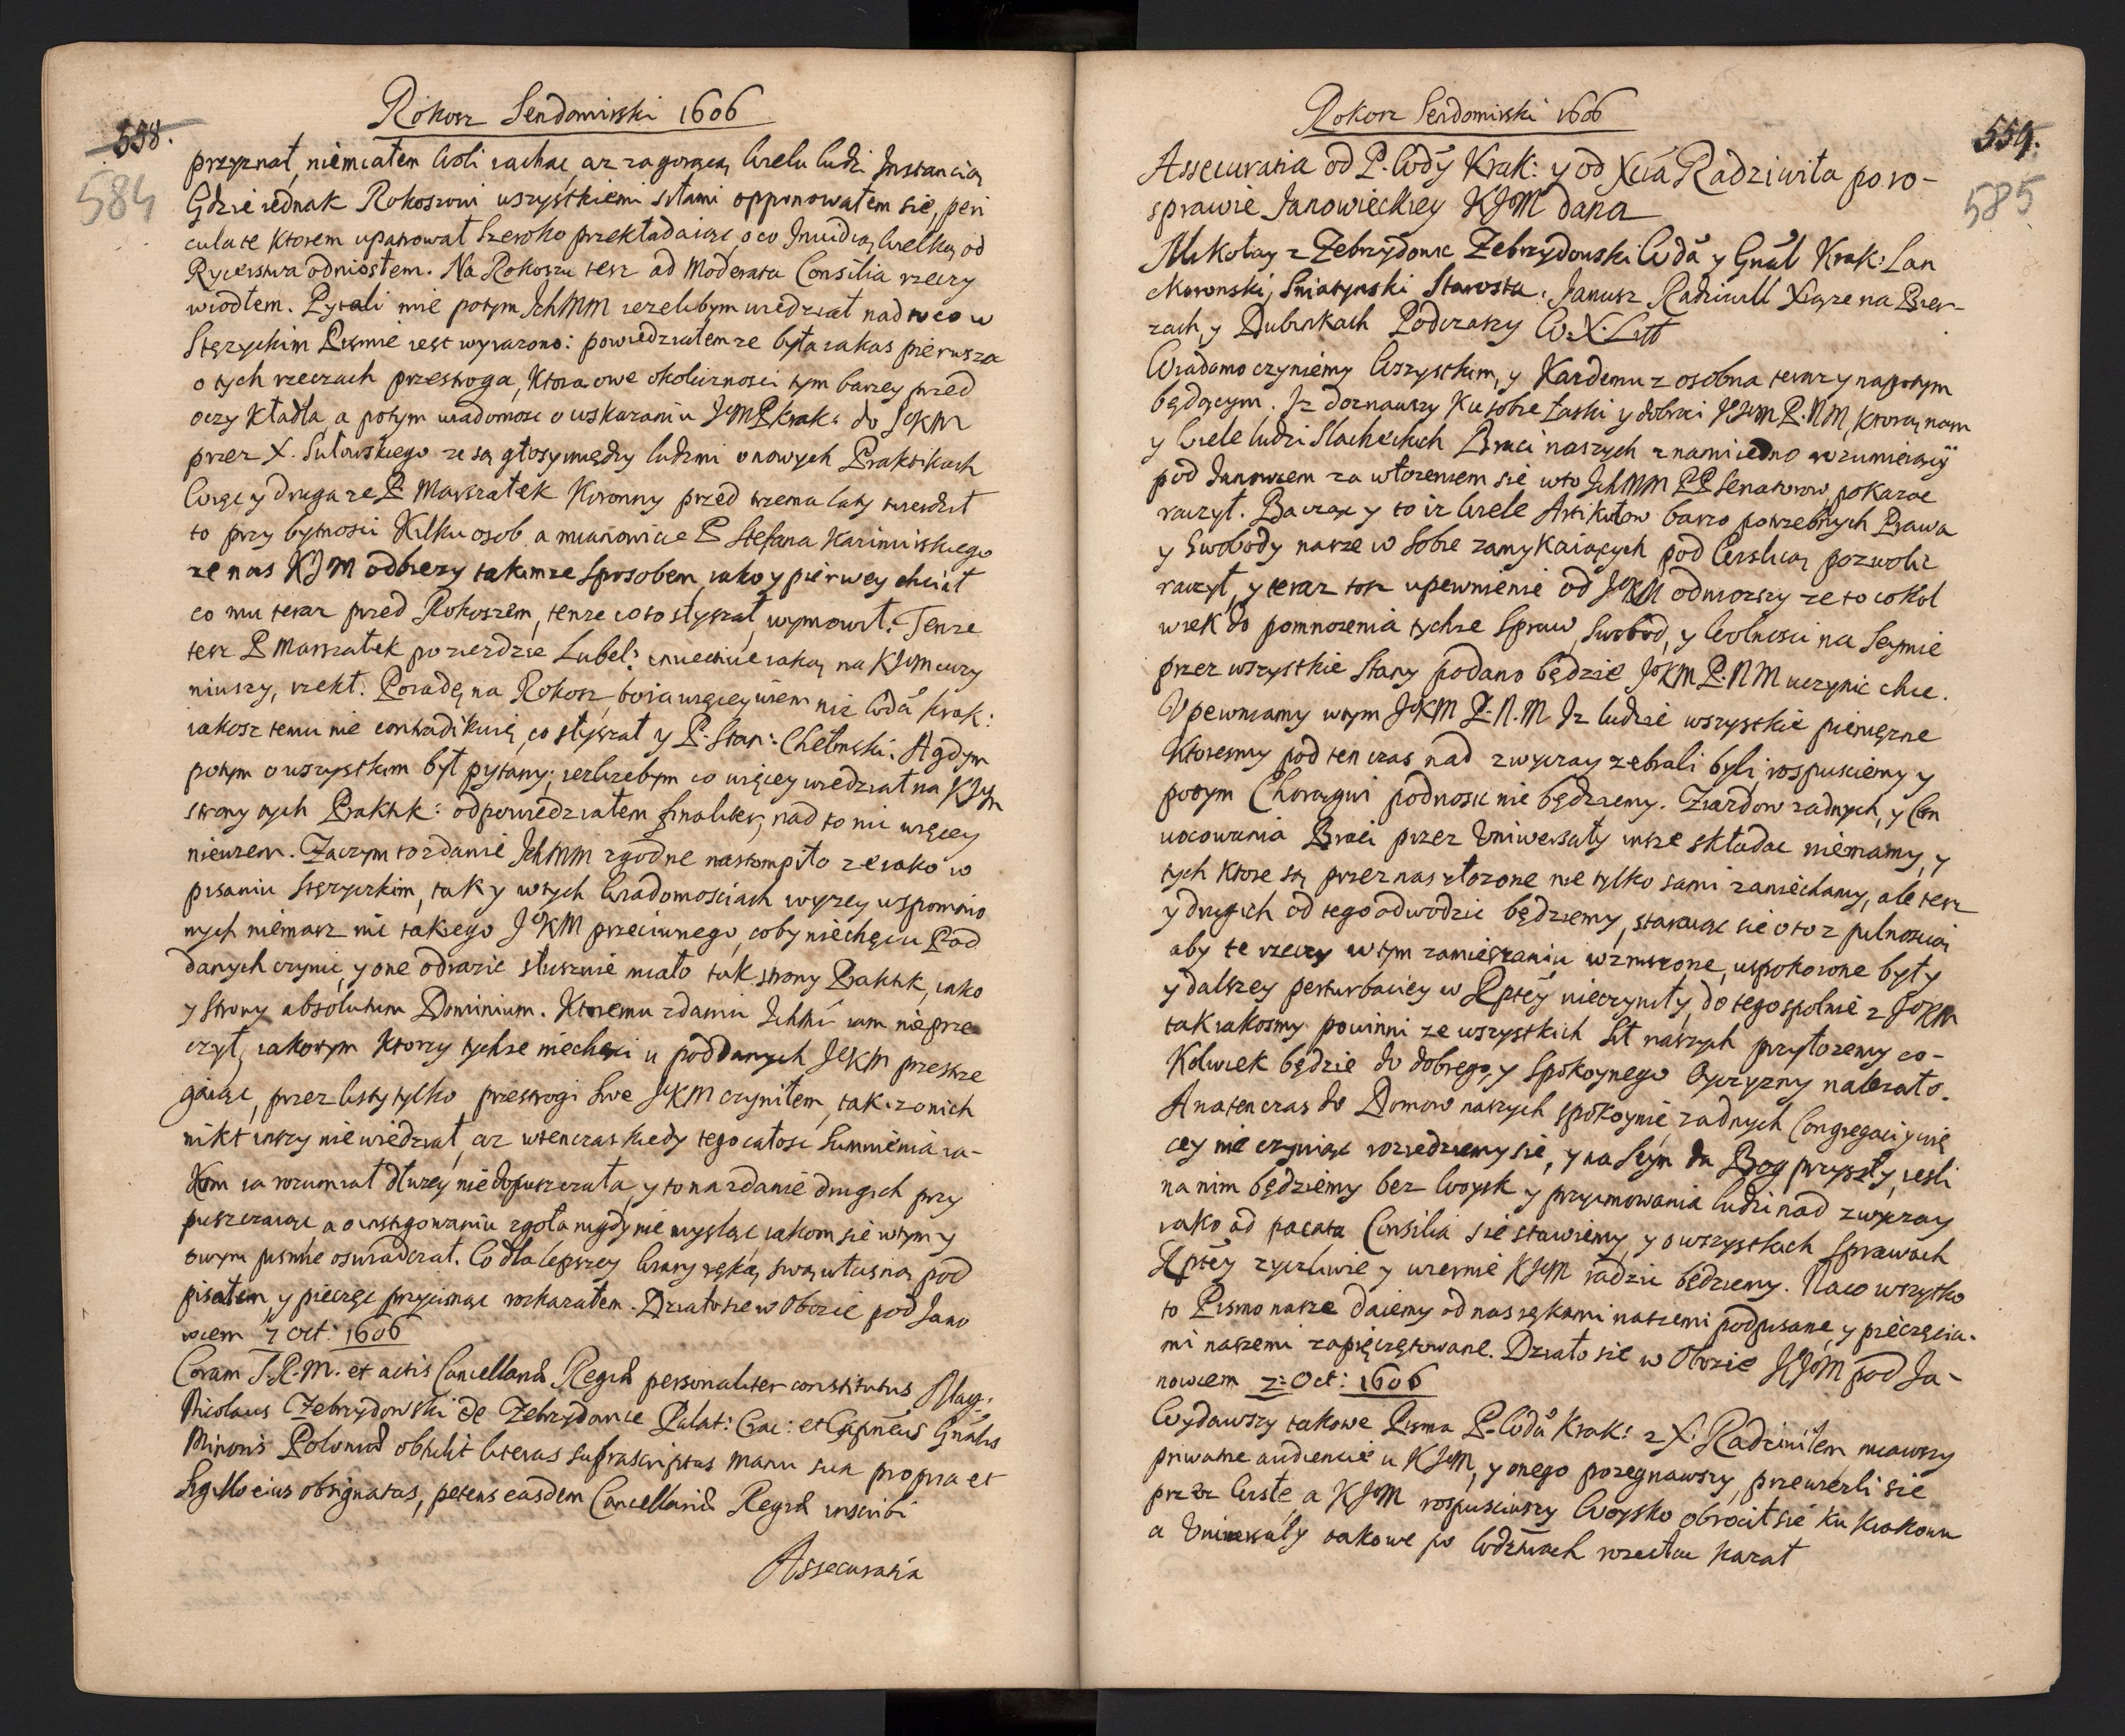 Rokosz Sendomirski 1606
558.
584
przyznał, niemiałem woli iachac, aż zagorącą wielu ludzi Instancią
Gdzie iednak Rokoszowi wszystkiemi siłami opponowałem się, peri
cula te ktorem upatrował szeroko przekładaiąc, o co Inuidią wielką od
Rycerstwa odniosłem. Na Rokoszu tesz ad Moderata Consilia rzeczy
wiodłem. Pytali mie potym IchMM iezelibym wiedział nad to co w
Stęzyckim Pismie iest wyrazono: powiedziałem ze była iakas pierwsza
o tych rzeczach przestroga, Ktora owe okolicznosci tym barzey przed
oczy kładła, a potym wiadomosc o wskazaniu JeMP krak: do JeKM
przez X. Sułowskiego ze są głosy między ludzmi o nowych Praktikach
Więc y druga ze P. Marszałek Koronny przed trzema laty twierdził
to przy bytnosci Kilku osob, a mianowicie P. Stefana Kazimirskiego
ze nas KJM odbiezy takimze sposobem, iako y pierwey chciał
co mu teraz przed Rokoszem, tenze co to słyszał, wymowił. Tenze
tesz P. Marszałek po ziezdzie Lubel: inuectiue iaką na KJeM uczy
niwszy, rzekł. Poiadę na Rokosz, bo ia więcey wiem niz Wdā Krak:
iakosz temu nie contradikuię, co słyszał y P. Stan: Chełmski. A gdym
potym o wszystkim był pytany, iezlizebym co więcey wiedział na KJeM
strony tych Praktik: odpowiedziałem finaliter, nad to nic więcey
niewiem. Zaczym to zdanie IchMM zgodne nastompiło ze iako w
pisaniu Stęzyckim, tak y w tych wiadomosciach wyzey wspomnio
nych niemasz nic takiego JeKM przeciwnego, coby niechęci u Pod
danych czynic, y one odrazic słusznie miało tak strony Praktik, iako
y strony absolutum Dominium. Ktoremu zdaniu IchMci iam nieprze
czył, iakotym ktorzy tychze niechęci u poddanych JeKM przestrze
gaiąc, przez listy tylko przestrogi swe JeKM czyniłem, tak iz o nich
nikt inszy niewiedział, az wtenczas kiedy tego całosc Sumnienia ia-
kom ia rozumiał dłuzey niedopuszczała, y to na zdanie drugich przy
puszczaiąc a o instigowaniu zgoła nigdy nie mysląc, iakom się w tym y
owym pismie oswiadczał. Co dla lepszey wiary ręką swą własną pod
pisałem, y pieczęc przycisnąc roskazałem. Działo sie w Obozie pod Jano
wcem 7 Oct: 1606
Coram S.R.M. et actis Cancellariæ Regiæ personaliter constitutus Mag:
Nicolaus Zebrzydowski de Zebrzydowice Palat: Crac: et Capneus Gnalis
Minoris Poloniæ obtulit literas suprascriptas manu sua propria et
Sigillo eius obsignatas, petens easdem Cancellariæ Regiæ inscribi
Assecuratia
Rokosz Sendomirski 1606
559.
585
Assecuratia od P. Wdy Krak: y od Xcia Radziwiła po ro-
sprawie Janowieckiey KJeM dana
Mikołay z Zebrzydowic Zebrzydowski Wdā y Gnāl Krak: Lan
ckoronski, Sniatynski Starosta. Janusz Radziwill Xiąze na Bier-
zach, y Dubinkach Podczaszy W.X.Litt
Wiadomo czyniemy Wszystkim, y Kazdemu z osobna teraz y napotym
będącym. Iz doznawszy ku sobie Łaski y dobroci JeKM P.N.M, ktorą nam
y wiele ludzi Slacheckich Braci naszych z nami iedno rozumieiący
pod Janowcem za włozeniem się w to IchMM PP Senatorow pokazac
raczył. Bacząc y to iz wiele Artikułow barzo potrzebnych Prawa
y Swobody nasze w sobie zamykaiących pod Wislicą pozwolic
raczył, y teraz tosz upewnienie od JeKM odniozszy ze to cokol
wiek do pomnozenia tychze Spraw, Swobod, y Wolnosci na Seymie
przez wszystkie Stany podano będzie JeKM P.N.M uczynic chce.
Upewniamy w tym JeKM P.N.M. Iz ludzie wszystkie pienięzne
ktoresmy pod ten czas nad zwyczay zebrali byli rospusciemy y
potym Chorągwi podnosic nie będziemy. Ziazdow zadnych, y Con
uocowania Braci przez Uniwersały insze składac niemamy, y
tych ktore są przez nas złozone nie tylko sami zaniechamy, ale tesz
y drugich od tego odwodzic będziemy, staraiąc się o to z pilnoscią
aby te rzeczy w tym zamięszaniu wzruszone, uspokoione były
y dalszey perturbaciey w Rptey nieczyniły, do tego spolnie z JeKM
tak iakosmy powinni ze wszystkich sił naszych przyłozemy co-
kolwiek będzie do dobrego, y spokoynego Oyczyzny nalezało.
A na ten czas do Domow naszych spokoynie, zadnych Congregaciy wię
cey nie czyniąc roziedziemy się, y na Seym da Bog przyszły, iesli
na nim będziemy bez Woysk y przyimowania ludzi nad zwyczay
iako ad pacata Consilia się stawiemy, y o wszystkich sprawach
Rptey zyczliwie y wiernie KJeM radzic będziemy. Na co wszytko
to Pismo nasze daiemy od nas rękami naszemi podpisane, y pieczęcia-
mi naszemi zapieczętowane. Działo się w Obozie JKJeM pod Ja-
nowcem 7: Oct: 1606
Wydawszy takowe Pisma P. Wdā Krak: z X. Radziwiłem, miawszy
priuatne audiencie u KJeM, y onego pozegnawszy, przewiezli się
przez Wisłę, a KJeM rospusciwszy Woysko obrocił się ku Krakowu
a Uniwersały takowe po Wdztwach rozesłac kazał